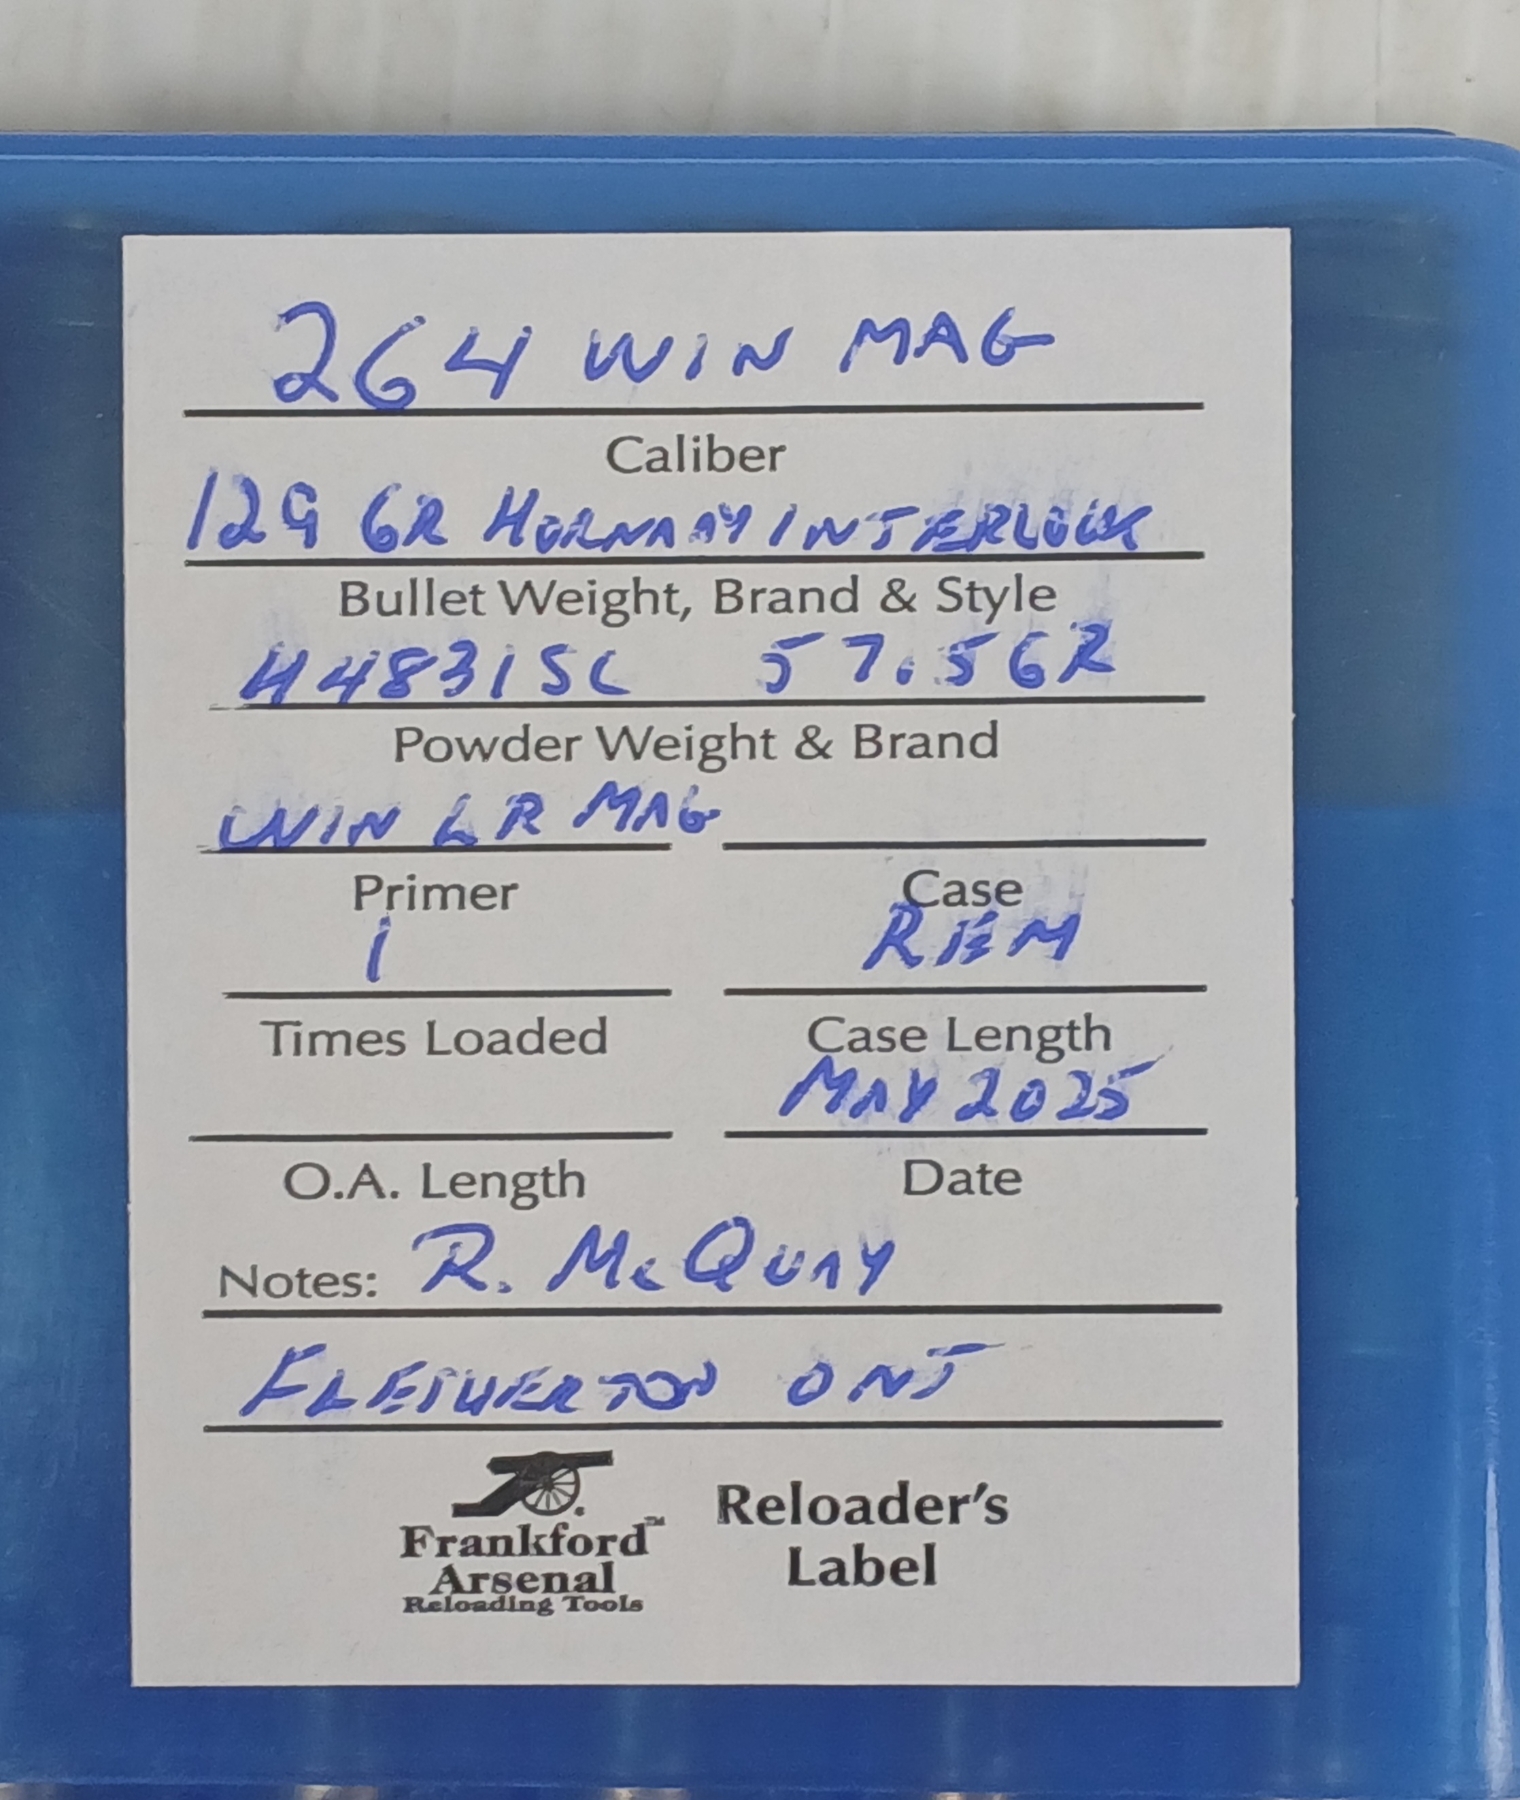 264 WIN MAG
Caliber
129 GR HORNADY INTERLOCK
Bullet Weight, Brand & Style
H4831SC 57.5GR
Powder Weight & Brand
WIN LR MAG
Primer Case
1 REM
Times Loaded Case Length
MAY 2025
O.A. Length Date
Notes: R. McQUAY
FLESHERTON ONT
Frankford™ Reloader's
Arsenal Label
Reloading Tools